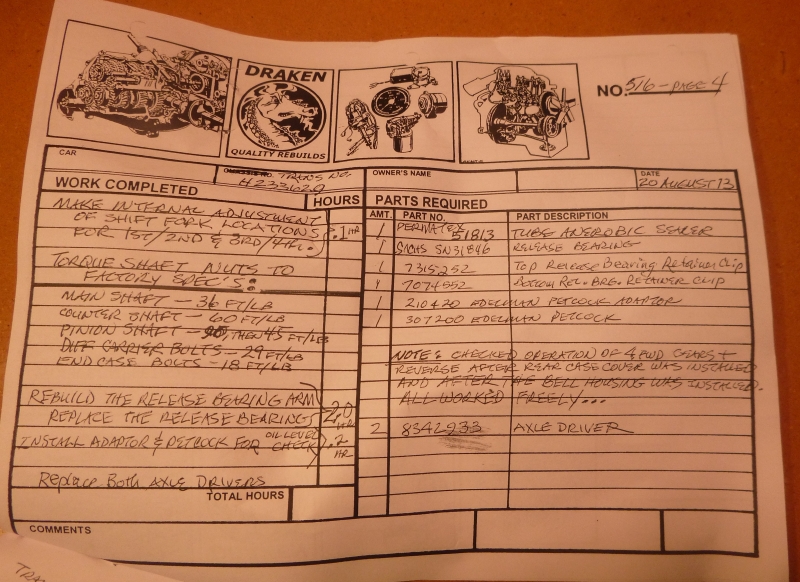 DRAKEN
QUALITY REBUILDS
NO. 516 - PAGE 4
CAR
TRANS NO.
H233629
OWNER'S NAME
DATE
20 AUGUST 13
WORK COMPLETED
HOURS
PARTS REQUIRED
AMT.
PART NO.
PART DESCRIPTION
MAKE INTERNAL ADJUSTMENT
OF SHIFT FORK LOCATIONS
FOR 1ST/2ND & 3RD/4TH.
.1 HR
TORQUE SHAFT NUTS TO
FACTORY SPEC'S:
MAIN SHAFT - 36 FT/LB
COUNTER SHAFT - 60 FT/LB
PINION SHAFT - THEN 45 FT/LB
DIFF CARRIER BOLTS - 29 FT/LB
END CASE BOLTS - 18 FT/LB
REBUILD THE RELEASE BEARING ARM
REPLACE THE RELEASE BEARING
2.0 HR
INSTALL ADAPTOR & PETCOCK FOR OIL LEVEL CHECK
.2 HR
Replace Both AXLE DRIVERS
TOTAL HOURS
1 PERMATEX 51813 TUBE ANEROBIC SEALER
1 SACHS SN31846 RELEASE BEARING
1 7315252 Top Release Bearing Retainer Clip
7074552 Bottom Rel. BRG. RETAINER CLIP
1 210420 EDELMAN PETCOCK ADAPTOR
1 307200 EDELMAN PETCOCK
NOTE: CHECKED OPERATION OF 4 FWD GEARS +
REVERSE AFTER REAR CASE COVER WAS INSTALLED
AND AFTER THE BELL HOUSING WAS INSTALLED.
ALL WORKED FREELY...
2 8342933 AXLE DRIVER
COMMENTS